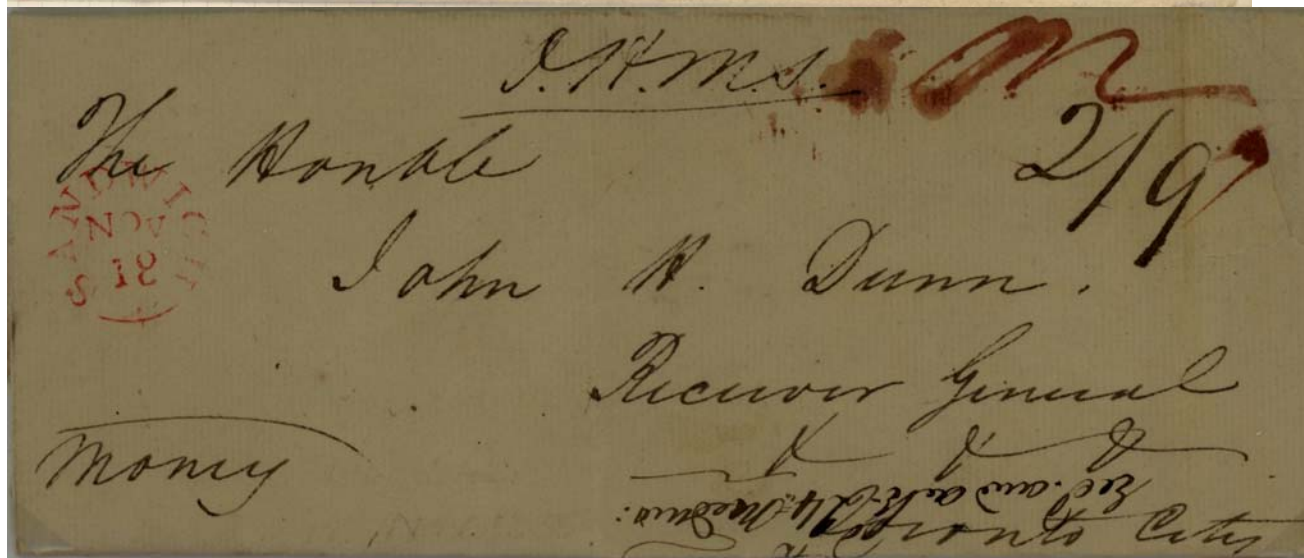 O.H.M.S.
The Honble
2/9
SANDWICH
NOV
18
John H. Dunn.
Receiver General
Money
&. &. &
Toronto City